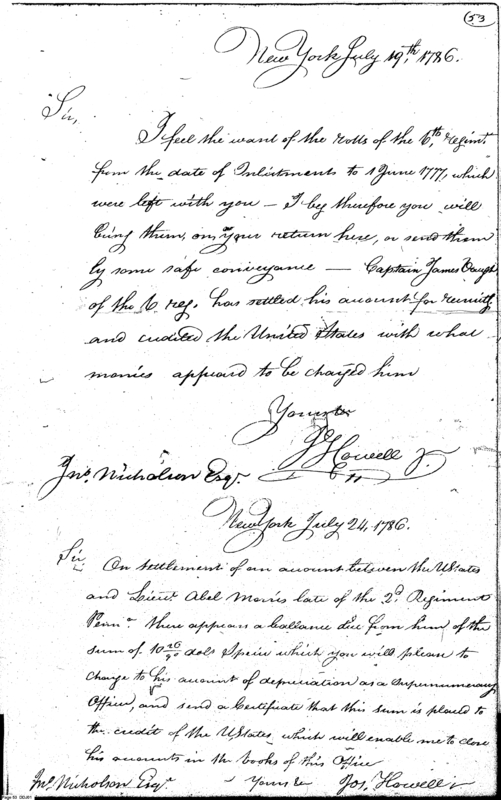 53
New York July 19th, 1786.
Sir,
I feel the want of the rolls of the 6th. Regimt.
from the date of Inlistments to 1 June 1777, which
were left with you — I beg therefore you will
bring them, on your return here, or send them
by some safe conveyance — Captain James
of the 6 reg. has settled his account for
and credited the United States with what
monies appeard to be charged him
Yours &c
Jo Howell Jr.
Jno. Nicholson Esqr.
New York July 24, 1786.
Sir
On settlement of an account between the UStates
and Lieut. Abel Morris late of the 2d. Regiment
Penna. there appears a ballance due from him of the
sum of 10 dols Specie which you will please to
charge to his account of depreciation as a Supernumerary
Officer, and send a Certificate that this sum is placed to
the credit of the UStates, which will enable me to close
his accounts in the books of this Office
Jno. Nicholson Esqr. - Yours &c Jos. Howell Jr